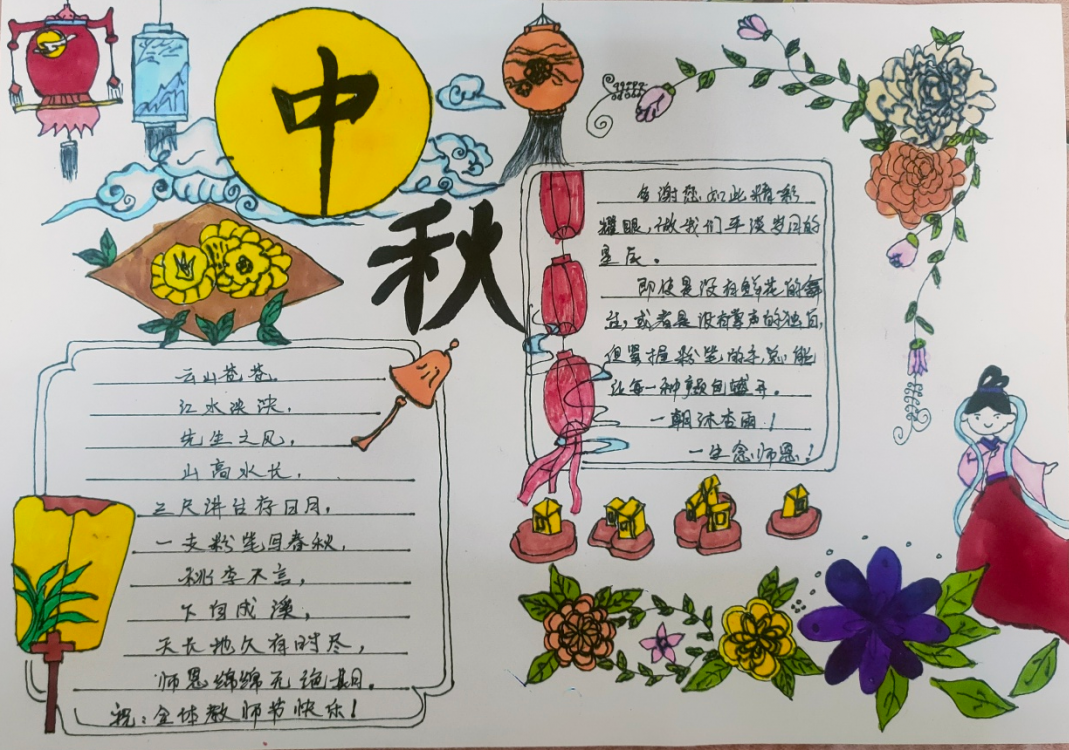 中
秋
云山苍苍.
江水泱泱.
先生之风.
山高水长.
三尺讲台存日月,
一支粉笔写春秋,
桃李不言,
下自成溪,
天长地久有时尽,
师恩绵绵无绝期。
祝:全体教师节快乐!
多谢您如此精彩
耀眼,做我们平淡岁月的
星辰。
即使是没有鲜花的舞
台,或者是没有掌声的独白,
但紧握粉笔的手总能
让每一种颜色盛开。
一朝沐杏雨!
一生念师恩!